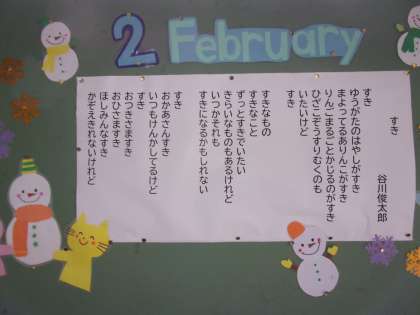 2 February
すき
谷川俊太郎
すき
ゆうがたのはやしがすき
まよってるありんこがすき
りんごまるごとかじるのがすき
ひざこぞうすりむくのも
いたいけど
すき
すきなもの
すきなこと
ずっとすきでいたい
きらいなものもあるけれど
いつかそれも
すきになるかもしれない
すき
おかあさんすき
いつもけんかしてるけど
すき
おつきさますき
おひさますき
ほしみんなすき
かぞえきれないけれど